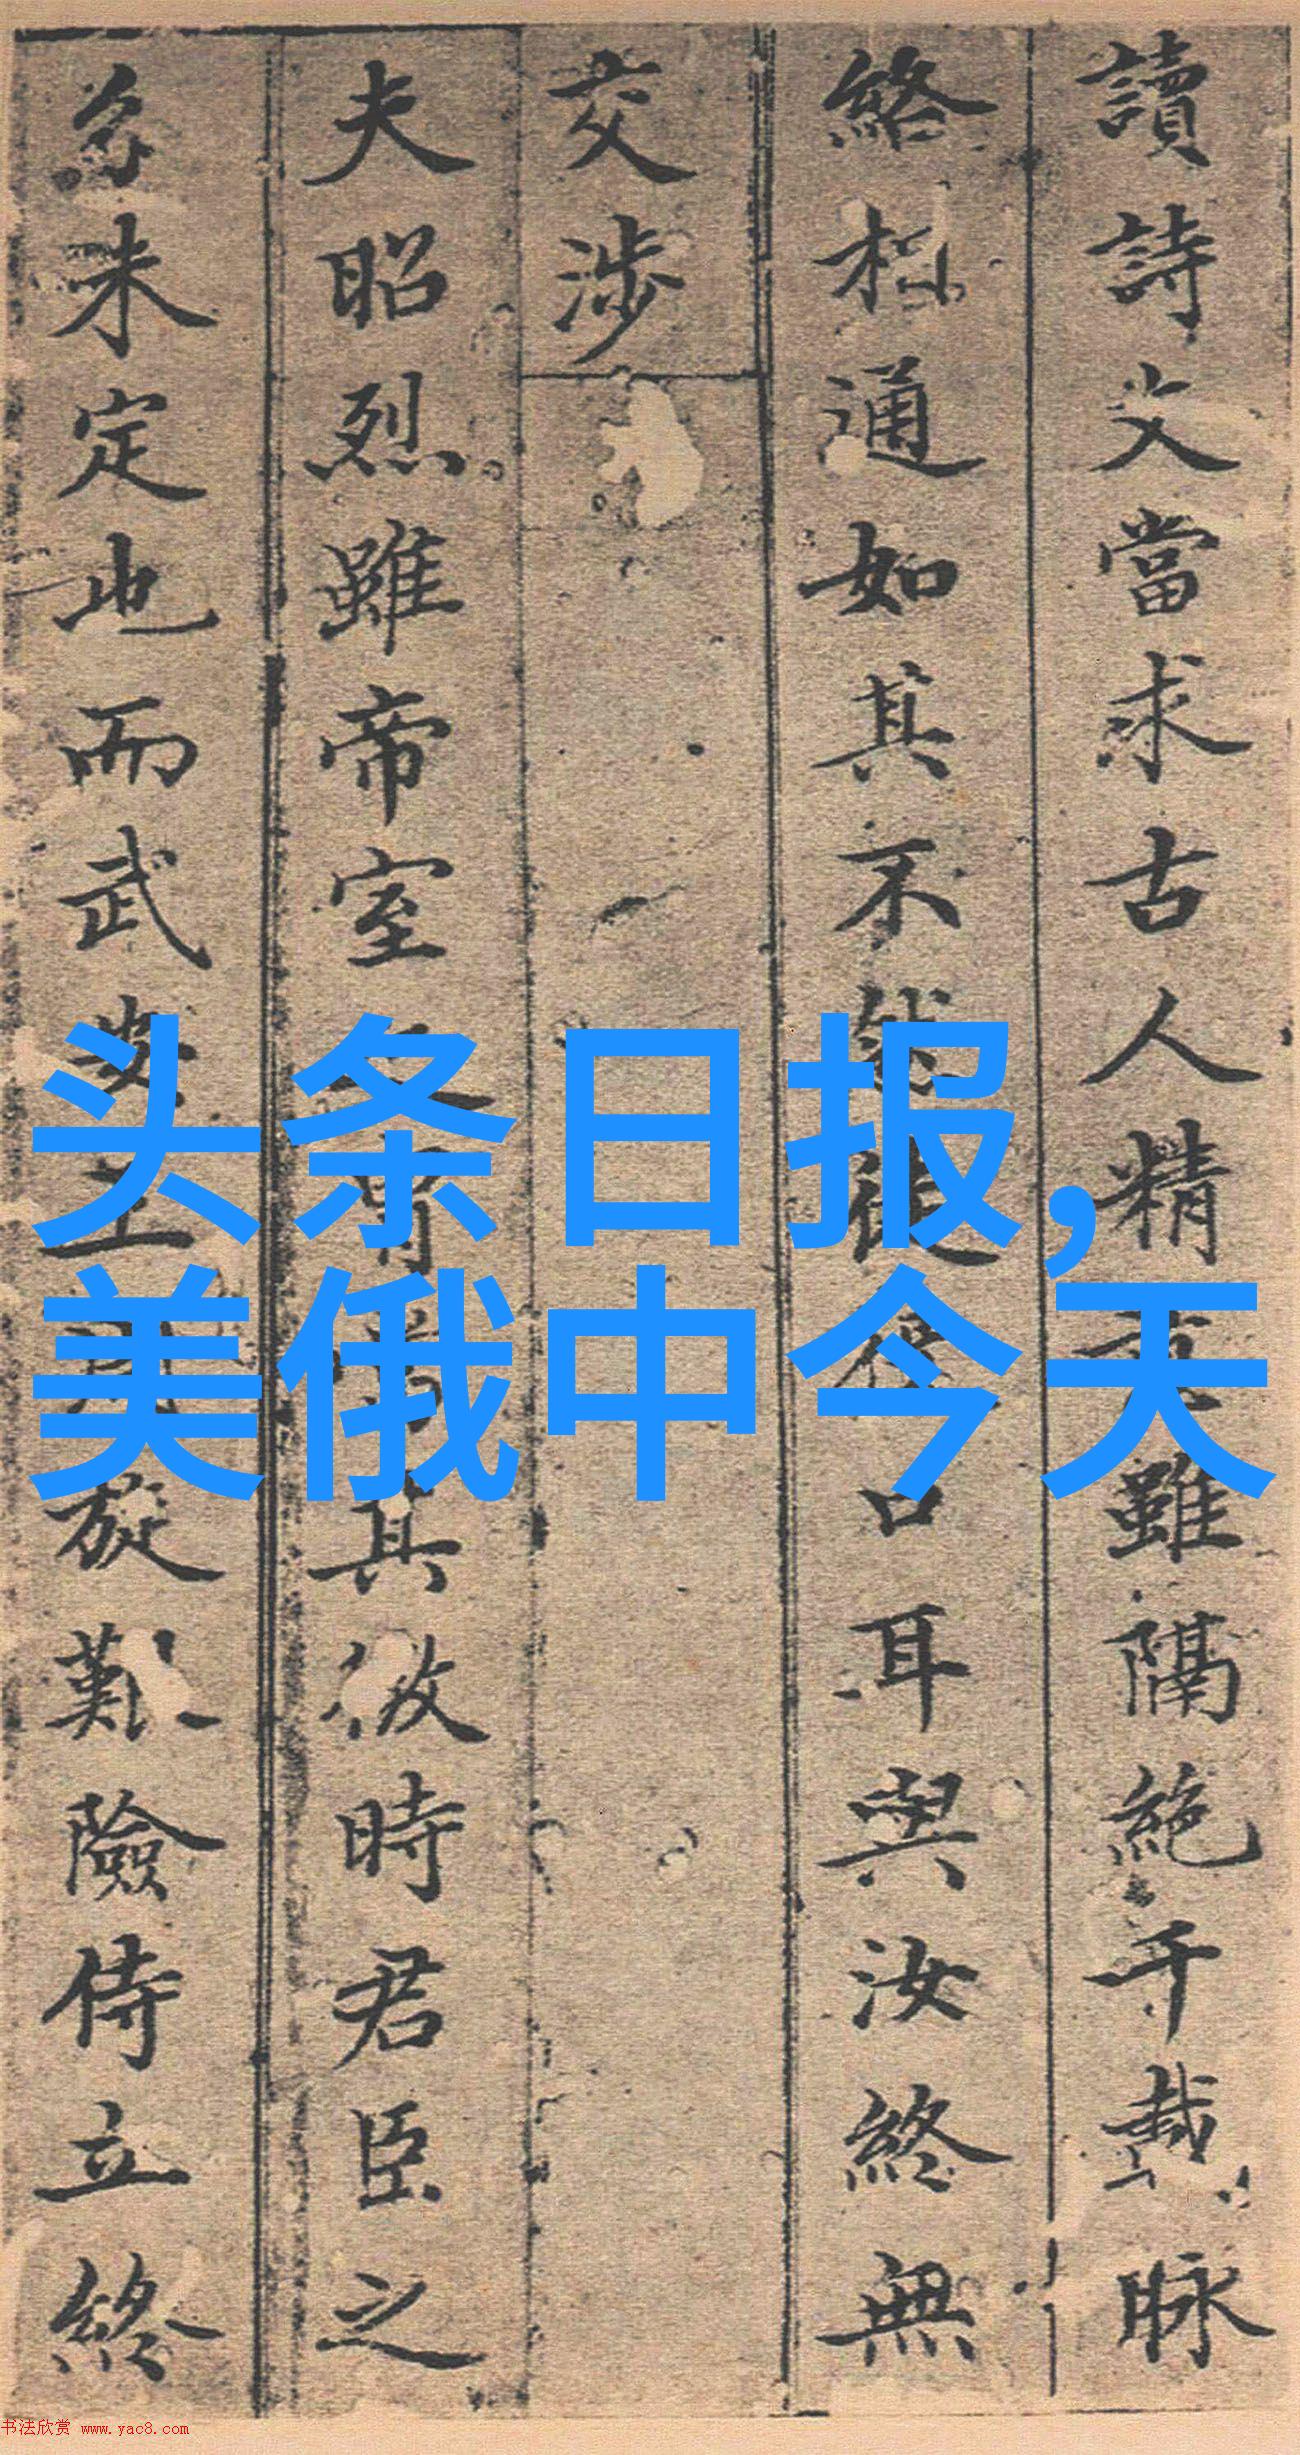 讀詩文當求古人精雖隔絶千載脉
絡相通如其不然徒口耳與汝終無
交涉
夫昭烈雖帝室其微時君臣之
未定也而武旋難險侍立終
头条日报,
美俄中今天
书法欣赏 www.yac8.com